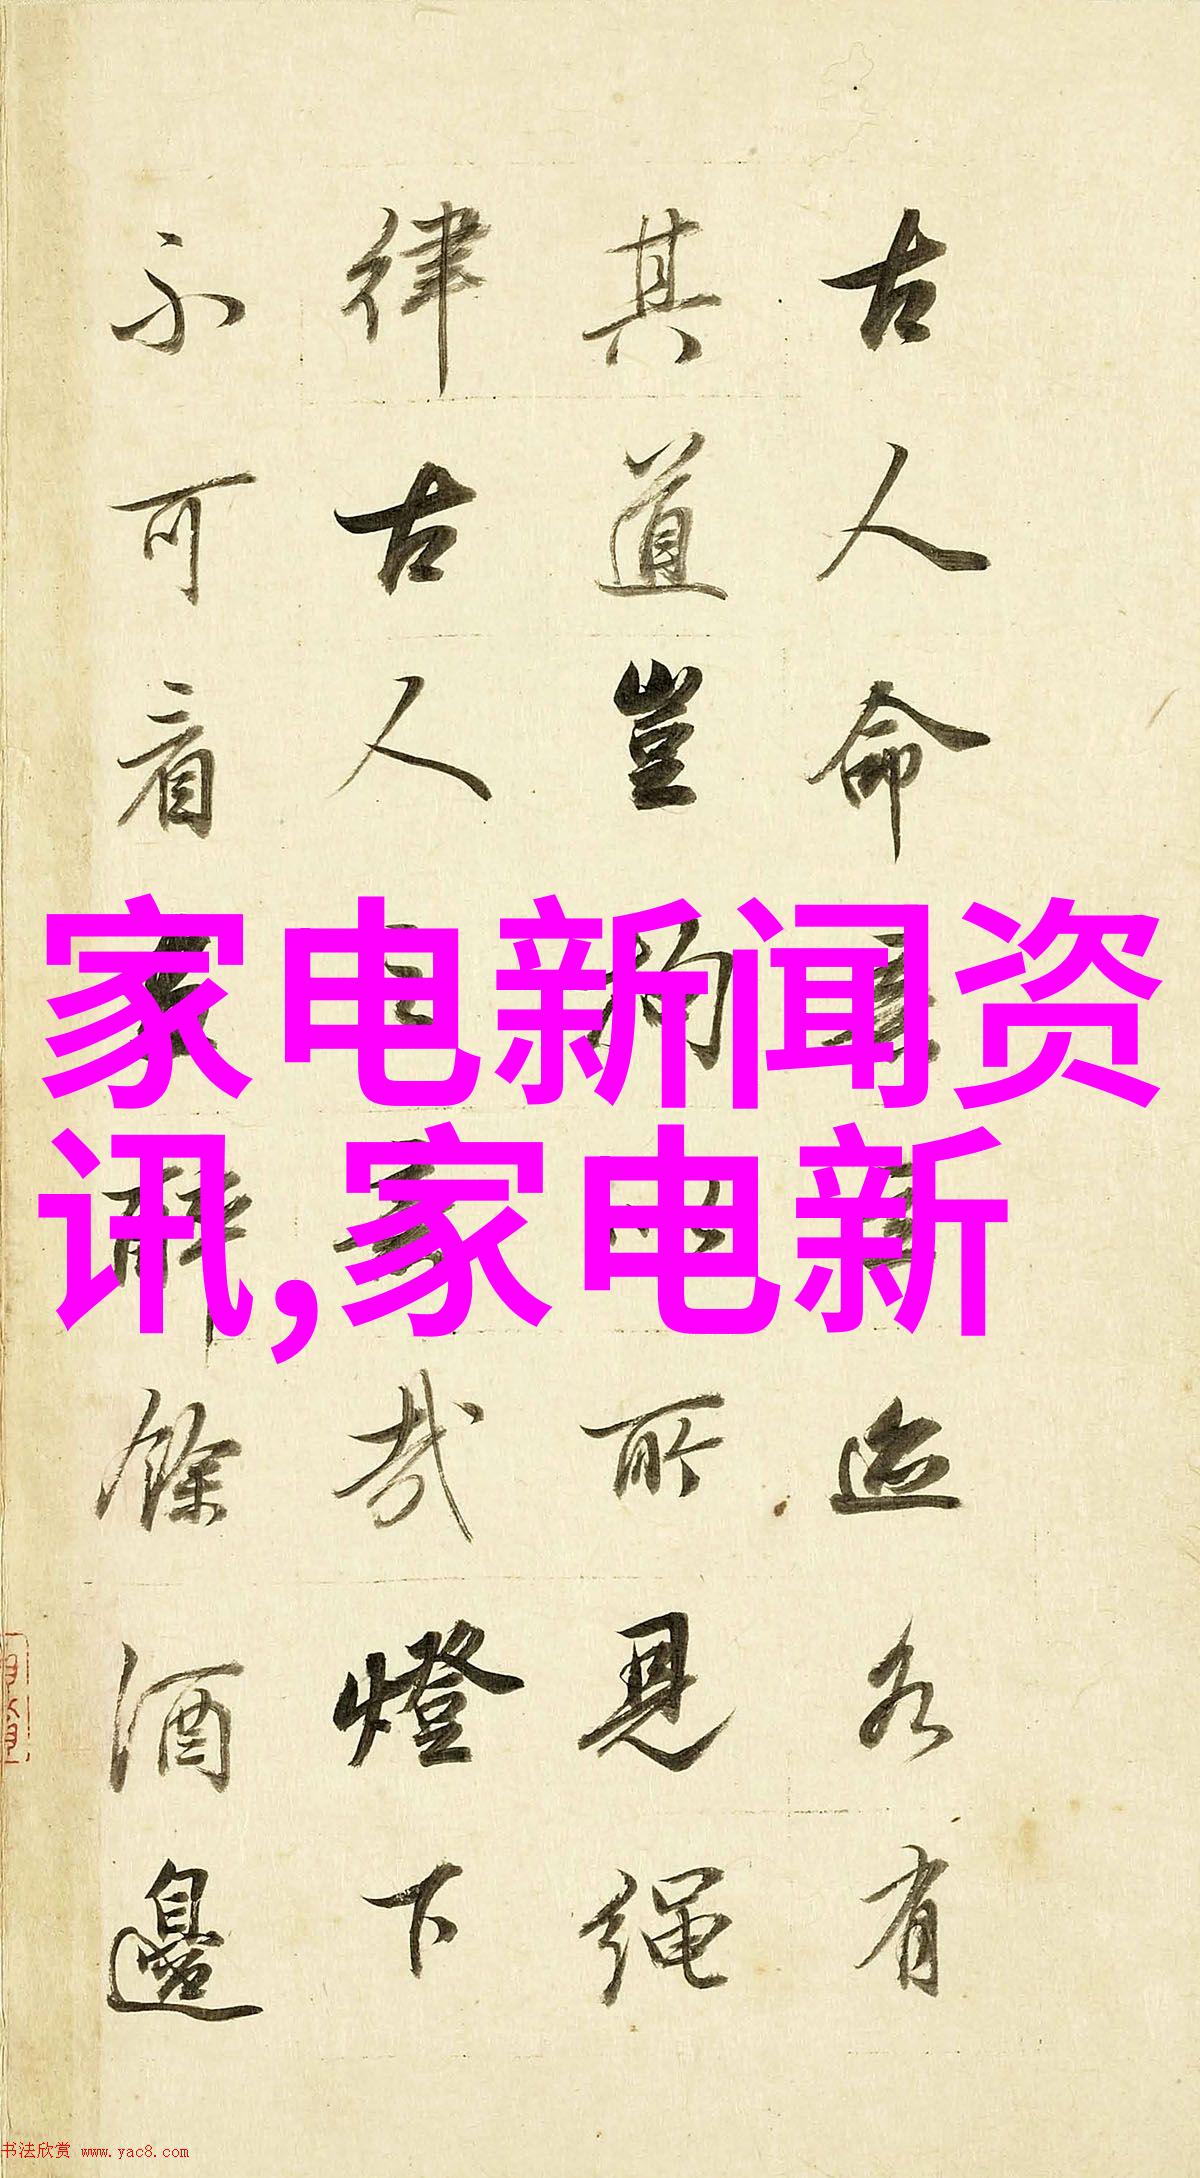 古人命迹各有
其道豈拘所見繩
律古人哉燈下
不可看醉餘酒邊
家电新闻资
讯,家电新
书法欣赏 www.yac8.com